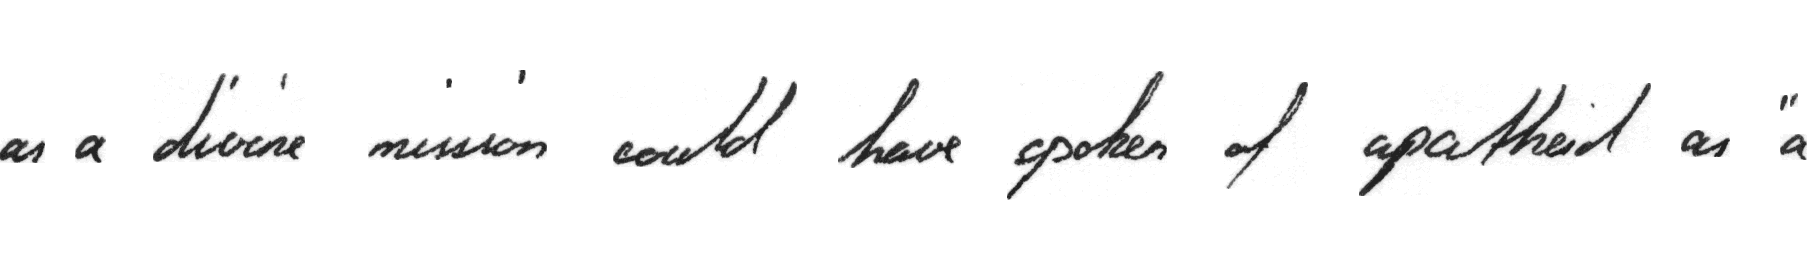 as a divine mission could have spoken of apatheid as "a